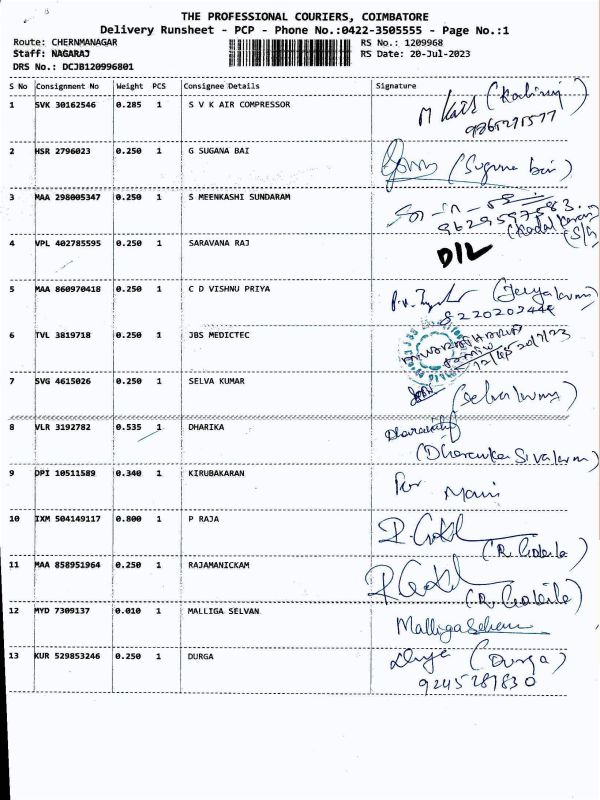 THE PROFESSIONAL COURIERS, COIMBATORE
Delivery Runsheet - PCP - Phone No.:0422-3505555 - Page No.:1
Route: CHERNMANAGAR RS No.: 1209968
Staff: NAGARAJ RS Date: 20-Jul-2023
DRS No.: DCJB120996801
S No Consignment No Weight PCS Consignee Details Signature
1 SVK 30162546 0.285 1 S V K AIR COMPRESSOR
2 HSR 2796023 0.250 1 G SUGANA BAI (Suguna bai)
3 MAA 298005347 0.250 1 S MEENKASHI SUNDARAM
4 VPL 402785595 0.250 1 SARAVANA RAJ D/L
5 MAA 860970418 0.250 1 C D VISHNU PRIYA
6 TVL 3819718 0.250 1 JBS MEDICTEC
7 SVG 4615026 0.250 1 SELVA KUMAR
8 VLR 3192782 0.535 1 DHARIKA
9 DPI 10511589 0.340 1 KIRUBAKARAN
10 IXM 504149117 0.800 1 P RAJA
11 MAA 858951964 0.250 1 RAJAMANICKAM
12 MYD 7309137 0.010 1 MALLIGA SELVAN
13 KUR 529853246 0.250 1 DURGA (Durga)
9245287830